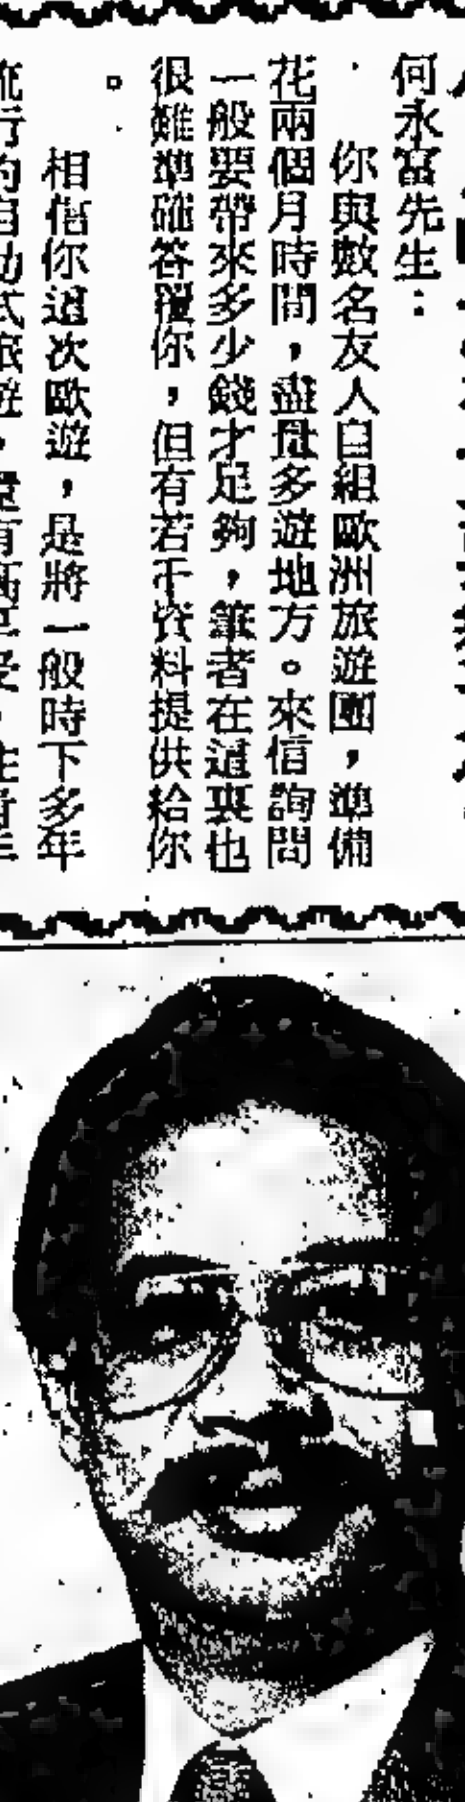 何永富先生：
你與數名友人自組歐洲旅遊團，準備
花兩個月時間，盡量多遊地方。來信詢問
一般要帶來多少錢才足夠，筆者在這裏也
很難準確答覆你，但有若干資料提供給你
。
相信你這次歐遊，是將一般時下多年